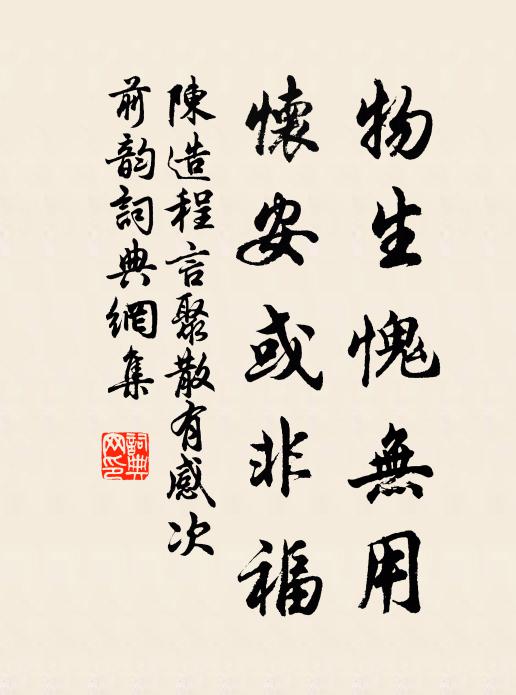 物生愧無用
懷安或非福
陳造程言聚散有感次
前韵詞典網集
詞典网印